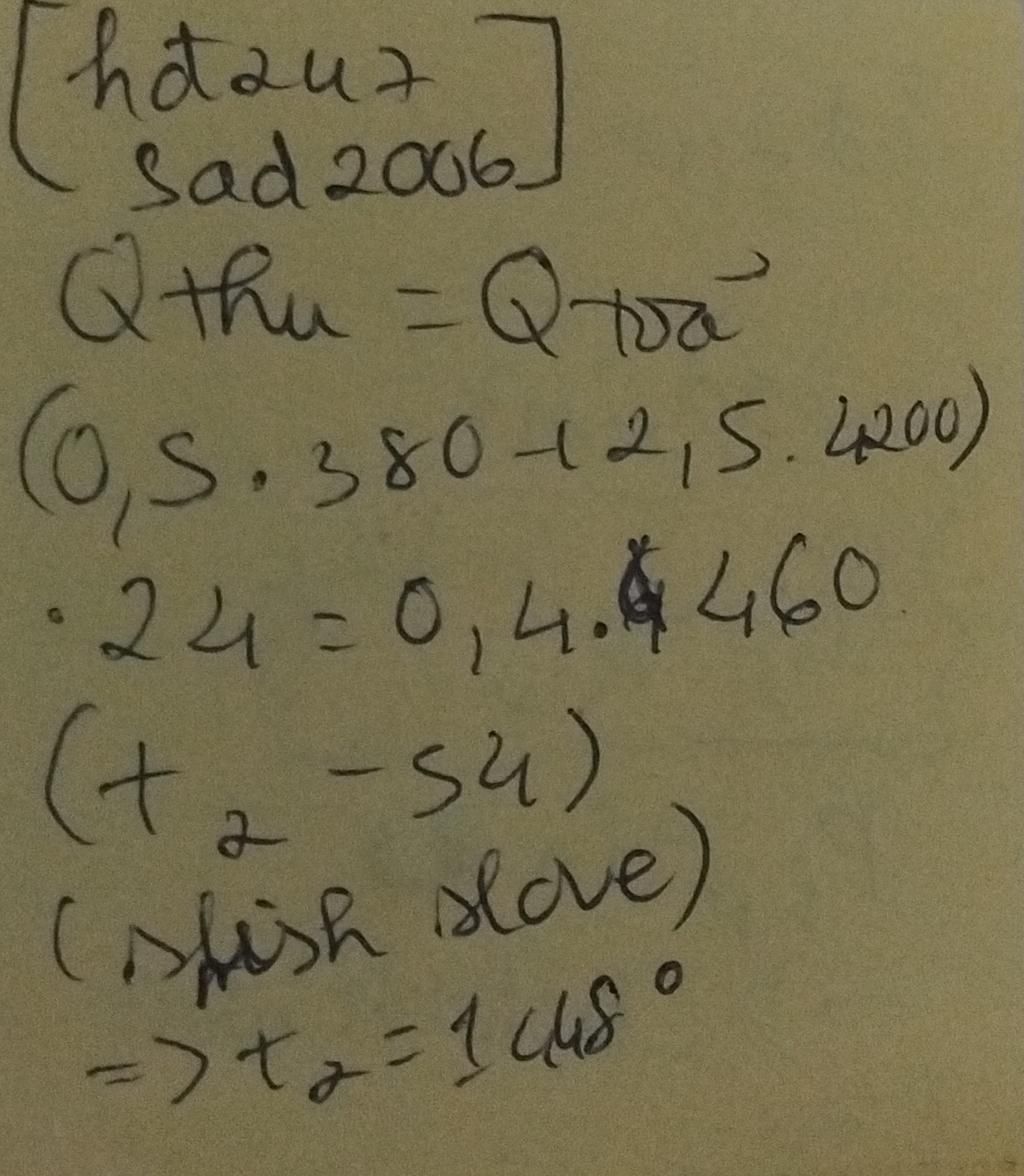 [hdt247
sad2006]
Q thu = Q toả
(0,5.380+2,5.4200)
.24=0,4.460
(t2-54)
(shish slove)
=>t2=1448°